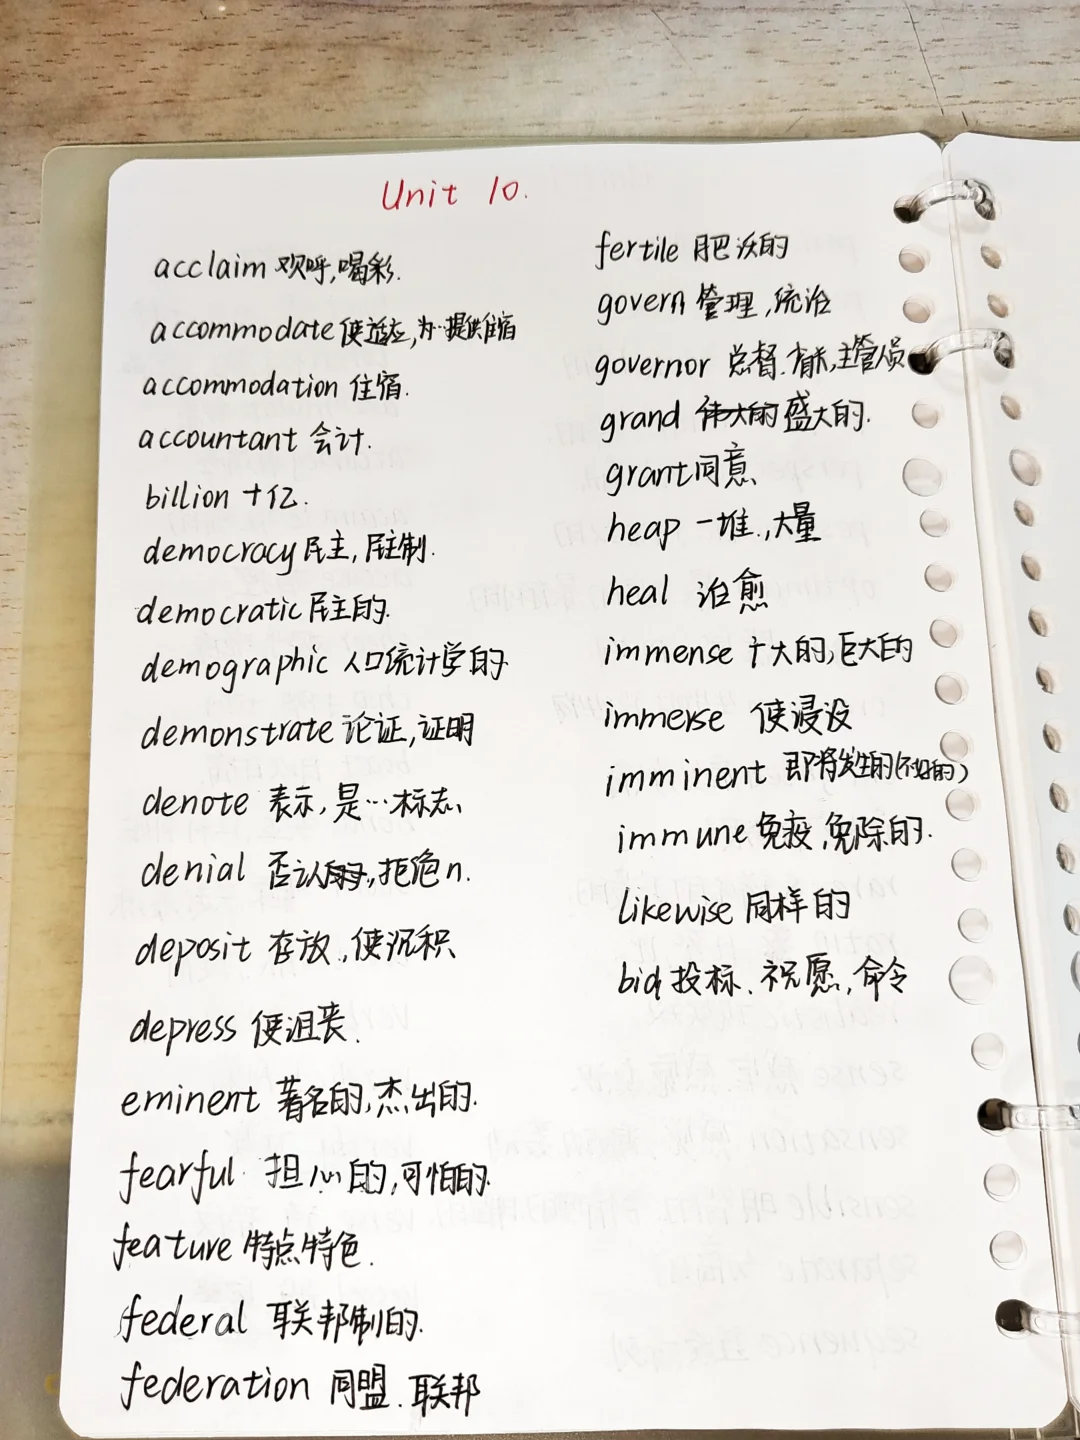 Unit 10.
acclaim 欢呼,喝彩.
accommodate 使适应,为…提供住宿
accommodation 住宿.
accountant 会计.
billion 十亿.
democracy 民主,民主制.
democratic 民主的.
demographic 人口统计学的
demonstrate 论证,证明
denote 表示,是…标志
denial 否认,拒绝n.
deposit 存放,使沉积
depress 使沮丧.
eminent 著名的,杰出的.
fearful 担心的,可怕的.
feature 特点特色.
federal 联邦制的.
federation 同盟.联邦
fertile 肥沃的
govern 管理,统治
governor 总督.,主管人员
grand 伟大的 盛大的.
grant 同意
heap 一堆.,大量
heal 治愈
immense 十大的,巨大的
immerse 使浸没
imminent 即将发生的(不好的)
immune 免疫,免除的.
likewise 同样的
bid 投标、祝愿,命令